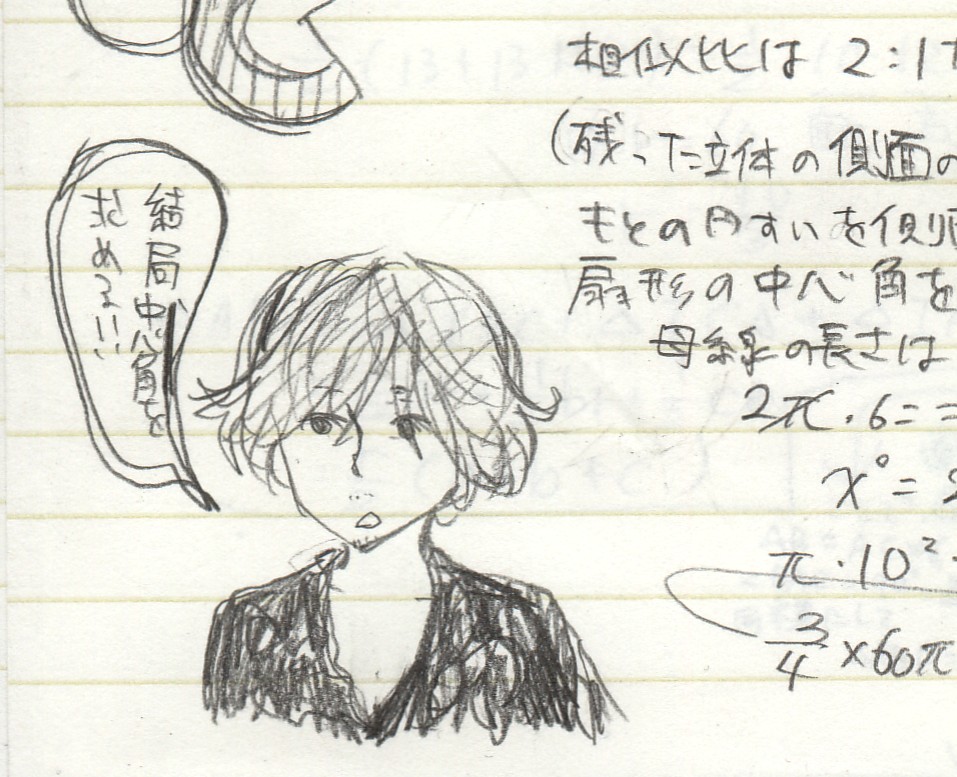 結局中心角を
求める!!
相似比は 2:1
(残った立体の側面の
もとの円すいを側
扇形の中心角を
母線の長さは
2π・6=
x°=
π・10²
3/4×60π